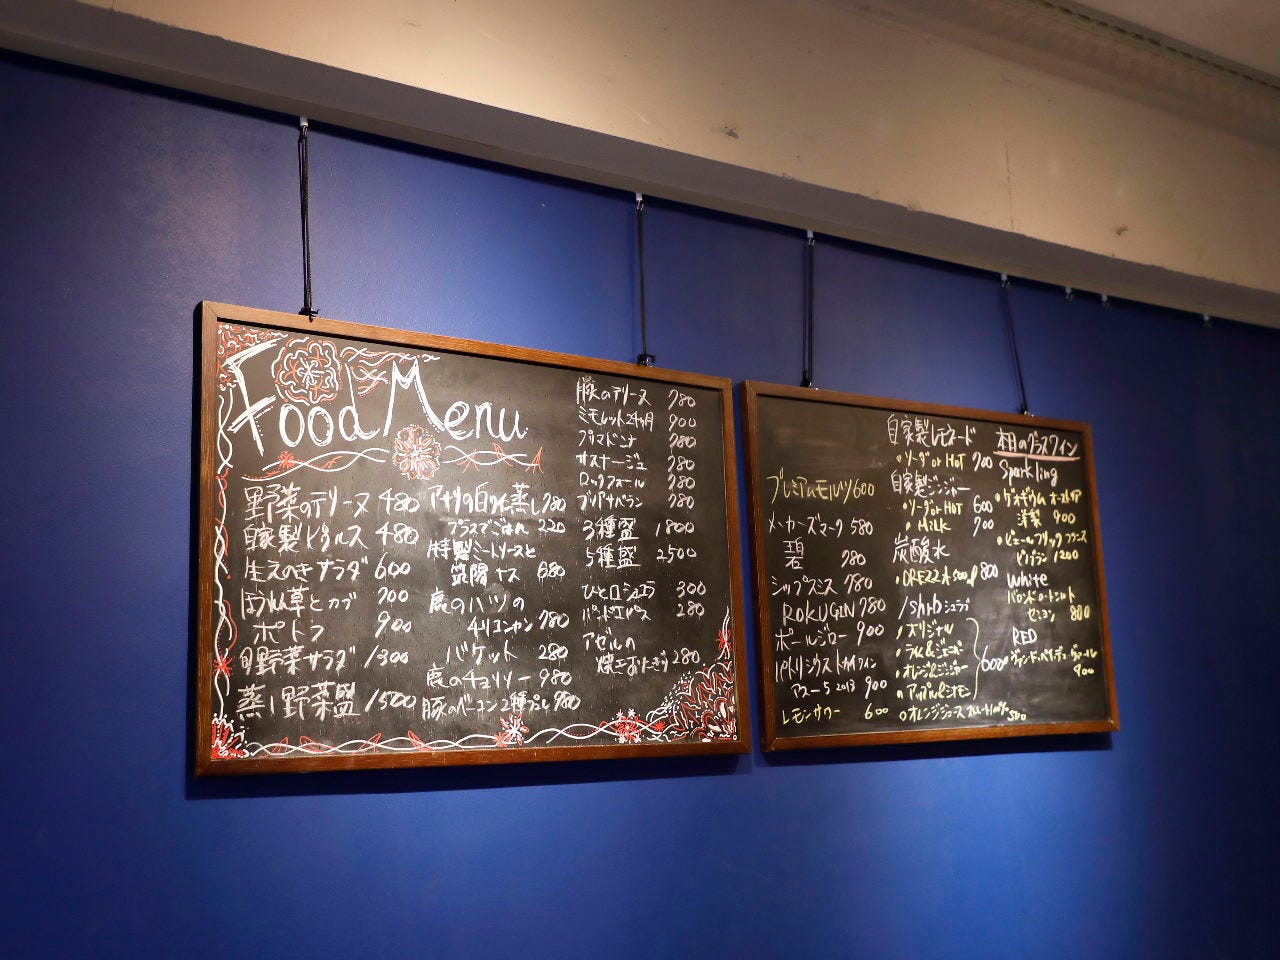 Food Menu
野菜のテリーヌ 480
自家製ピクルス 480
生えのきサラダ 600
ほうれん草とカブ 700
ポトフ 900
旬野菜サラダ 1300
蒸し野菜盛 1500
アサリの白ワイン蒸し 780
プラスでごはん 220
特製ミートソースと
筑陽ナス 680
鹿のハツの
チリコンカン 780
バケット 280
鹿のチョリソー 980
豚のベーコン2種プル 980
豚のテリーヌ 780
ミモレット24ヵ月 900
プリマドンナ 780
サステナージュ 780
ロックフォール 780
ブリアサバラン 780
3種盛 1800
5種盛 2500
ひと口ショコラ 300
パンドエピス 280
アゼルの
焼きおにぎり 280
プレミアムモルツ 600
メーカーズマーク 580
碧 780
シップスミス 780
ROKUGIN 780
ポールジロー 900
パトリシウストカイワイン
アスー5 2013 900
レモンサワー 600
自家製レモネード
・ソーダ or HOT 700
自家製ジンジャー
・ソーダ or HOT 600
・Milk 700
炭酸水
・OREZZA 500ml 800
/shrb シュラブ
・オリジナル
・ライム&ジュニパー
・オレンジ&ジンジャー 600
・アップル&シナモン
・オレンジジュース ストレート100% 500
本日のグラスワイン
Sparkling
洋梨 900
ピノブラン 1200
White
セミヨン 800
RED
900